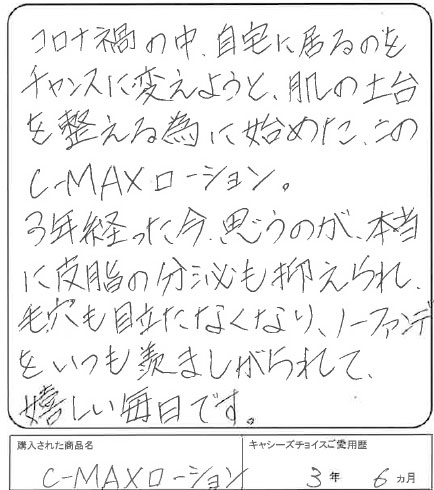 コロナ禍の中、自宅に居るのを
チャンスに変えようと、肌の土台
を整える為に始めた、この
C-MAXローション。
3年経った今、思うのが、本当
に皮脂の分泌も抑えられ、
毛穴も目立たなくなり、ノーファンデ
をいつも羨ましがられて、
嬉しい毎日です。
購入された商品名
キャシーズチョイスご愛用歴
C-MAXローション
3年 6ヵ月